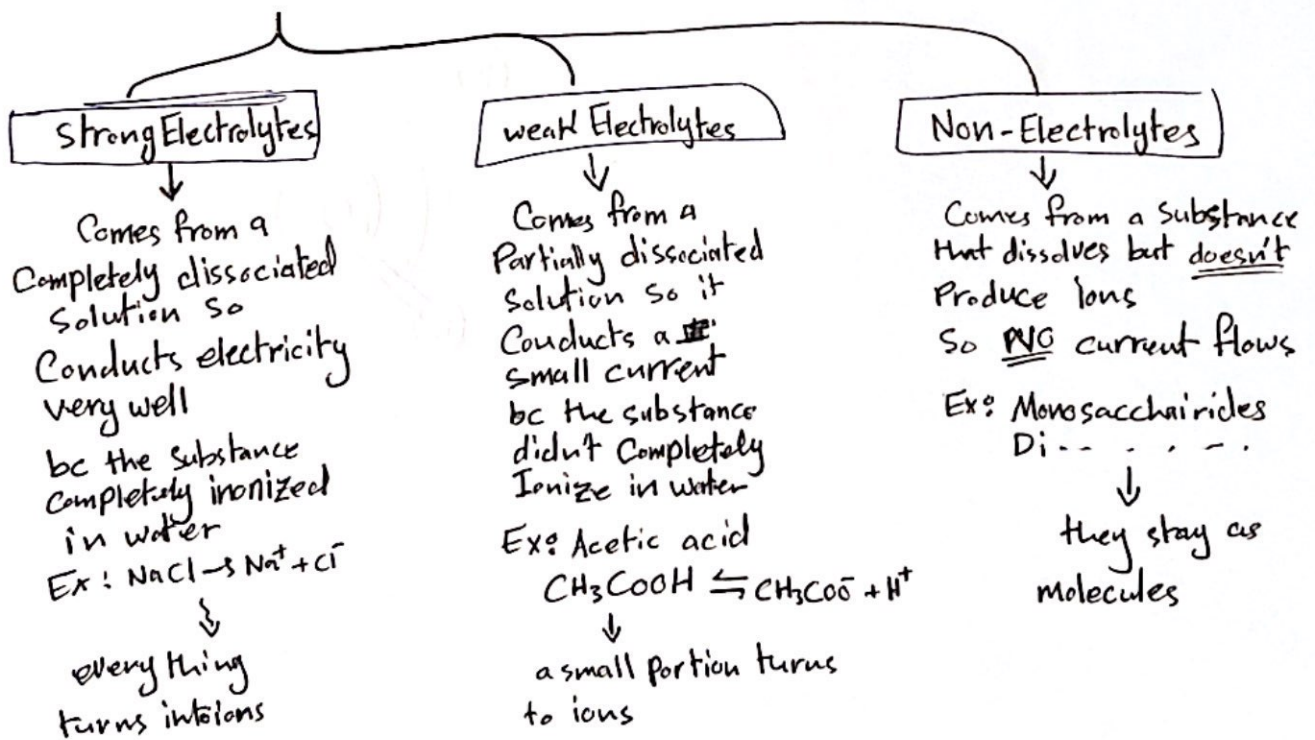 Strong Electrolytes
Comes from a
Completely dissociated
Solution so
Conducts electricity
very well
bc the substance
completely inonized
in water
Ex: NaCl → Na⁺ + Cl⁻
everything
turns into ions
weak Electrolytes
Comes from a
Partially dissociated
Solution so it
Conducts a
small current
bc the substance
didn't Completely
Ionize in water
Ex: Acetic acid
CH₃COOH ⇌ CH₃COO⁻ + H⁺
a small portion turns
to ions
Non-Electrolytes
Comes from a Substance
that dissolves but doesn't
Produce ions
So NO current flows
Ex: Monosacchairides
Di-- . . - .
they stay as
molecules